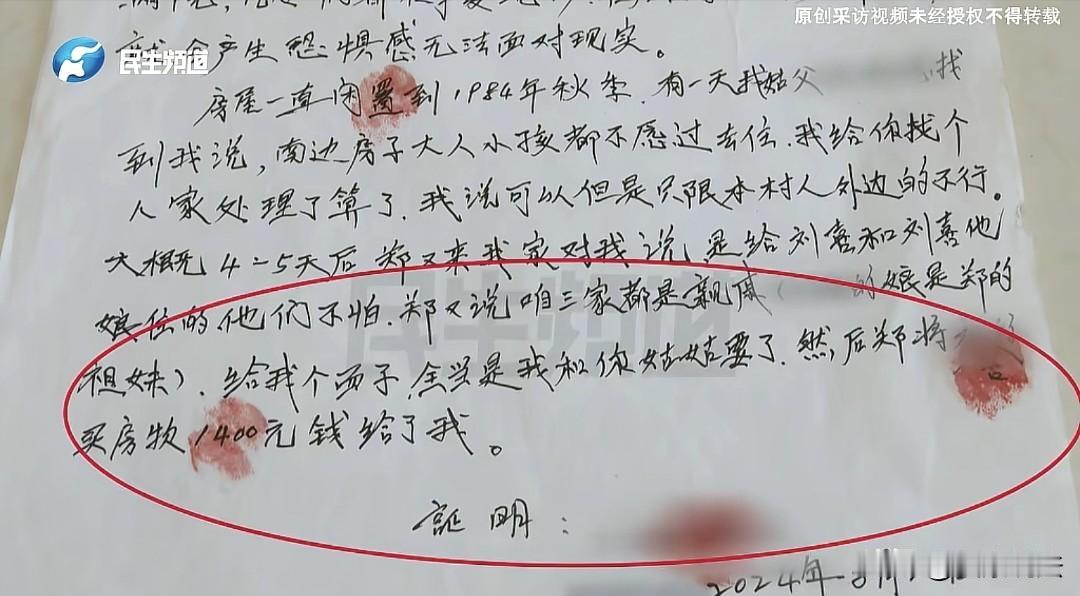 原创采访视频未经授权不得转载
民生频道
产生恐惧感无法面对现实。
房屋一直闲置到1984年秋季.有一天我姑父 找
到我说,南边房子大人小孩都不愿过去住.我给你找个
人家处理了算了.我说可以但是只限本村人外边的不行。
大概4-5天后郑又来我家对我说是给刘喜和刘喜他
娘住的他们不怕.郑又说咱三家都是亲戚( 的娘是郑的
祖妹).给我个面子,全当是我和你姑姑要了.然后郑将
买房款1400元钱给了我。
証明:
2024年 月
民生频道